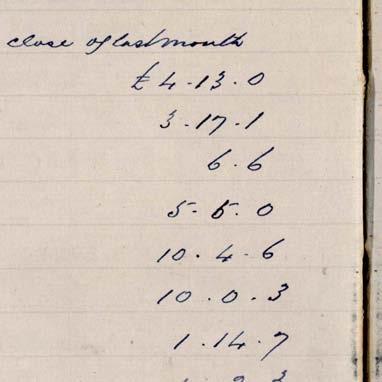 close of last month
£ 4.13.0
3.17.1
6.6
5.5.0
10.4.6
10.0.3
1.14.7